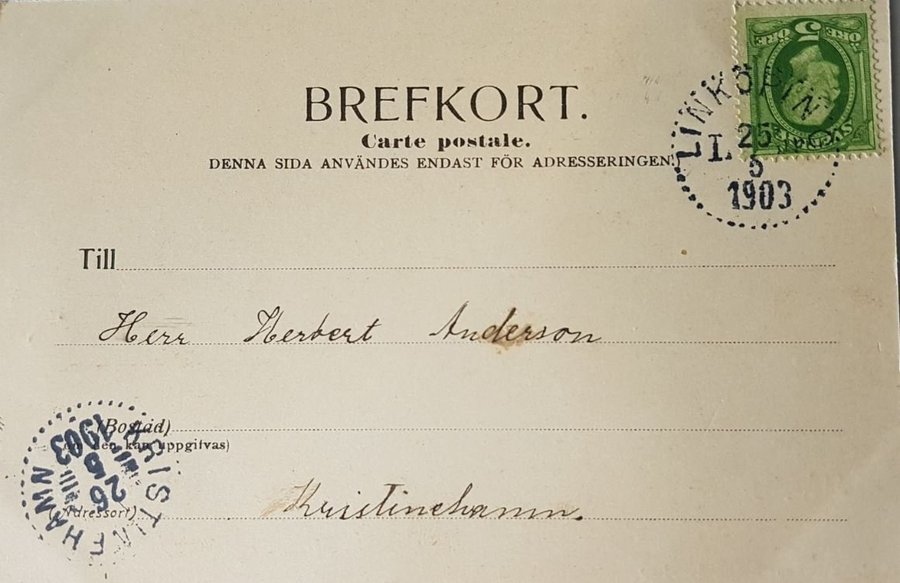 5 ÖRE ÖRE
BREFKORT.
Carte postale.
DENNA SIDA ANVÄNDES ENDAST FÖR ADRESSERINGEN.
LINKÖPIN
L. 25
5
1903
Till
Herr Herbert Anderson
(Bostad)
den kan uppgifvas)
KRISTINEHAMN
26
5
1903
(Adressort)
Kristinehamn.